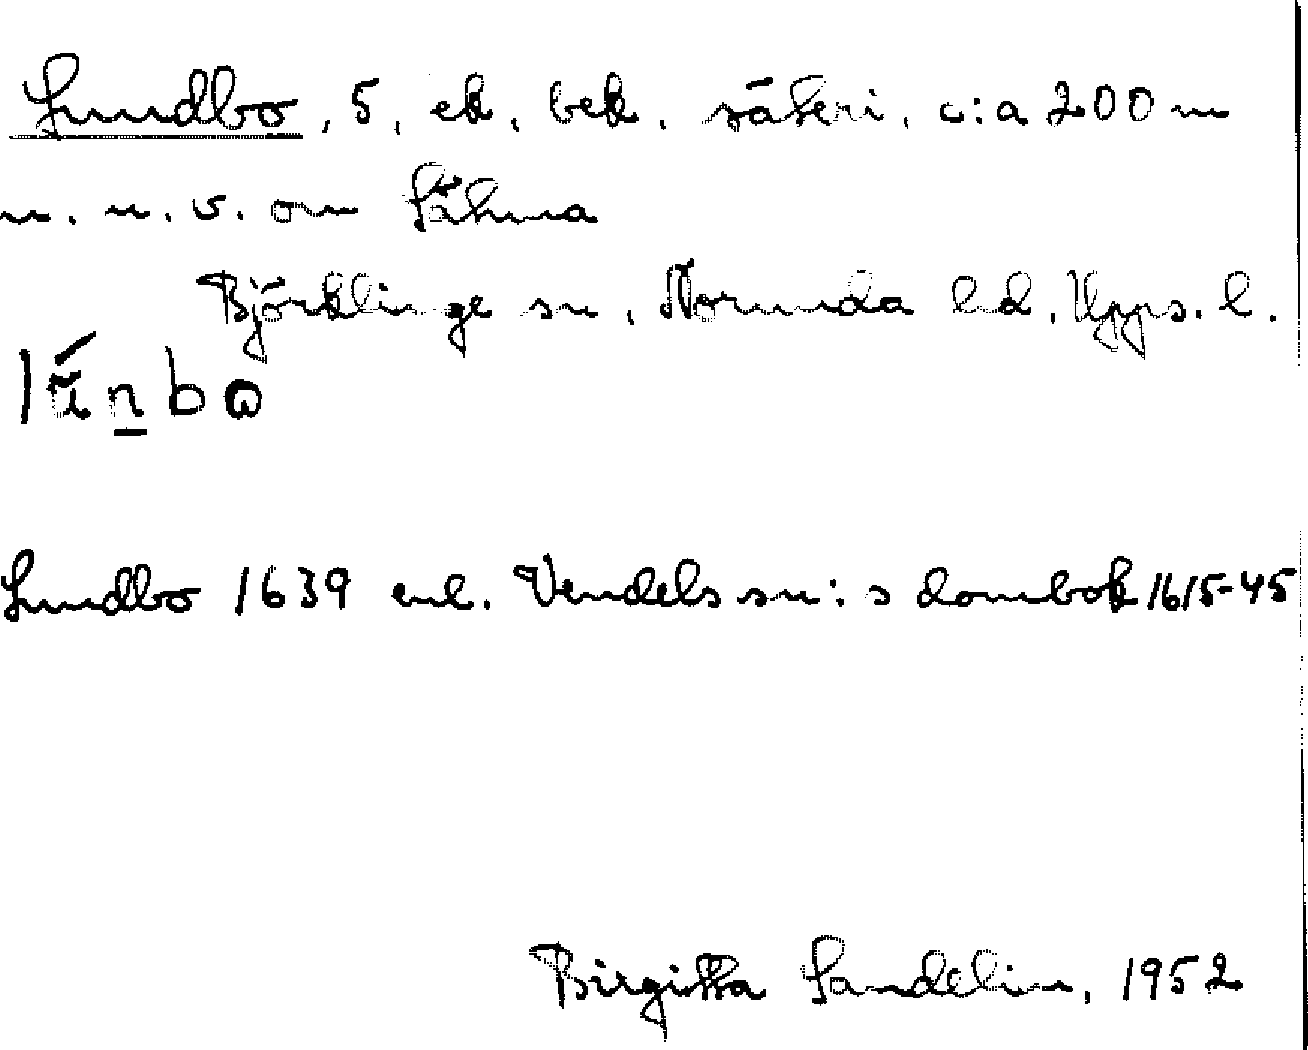 Lundbo, 5, ek. bek. säteri, c:a 200 m
n. n. v. om Sähma
Björklinge sn, Norunda hd. Upps. l.
Lundbo 1639 enl. Vendels sn:s dombok 1615-45
Birgitta Sandelin, 1952